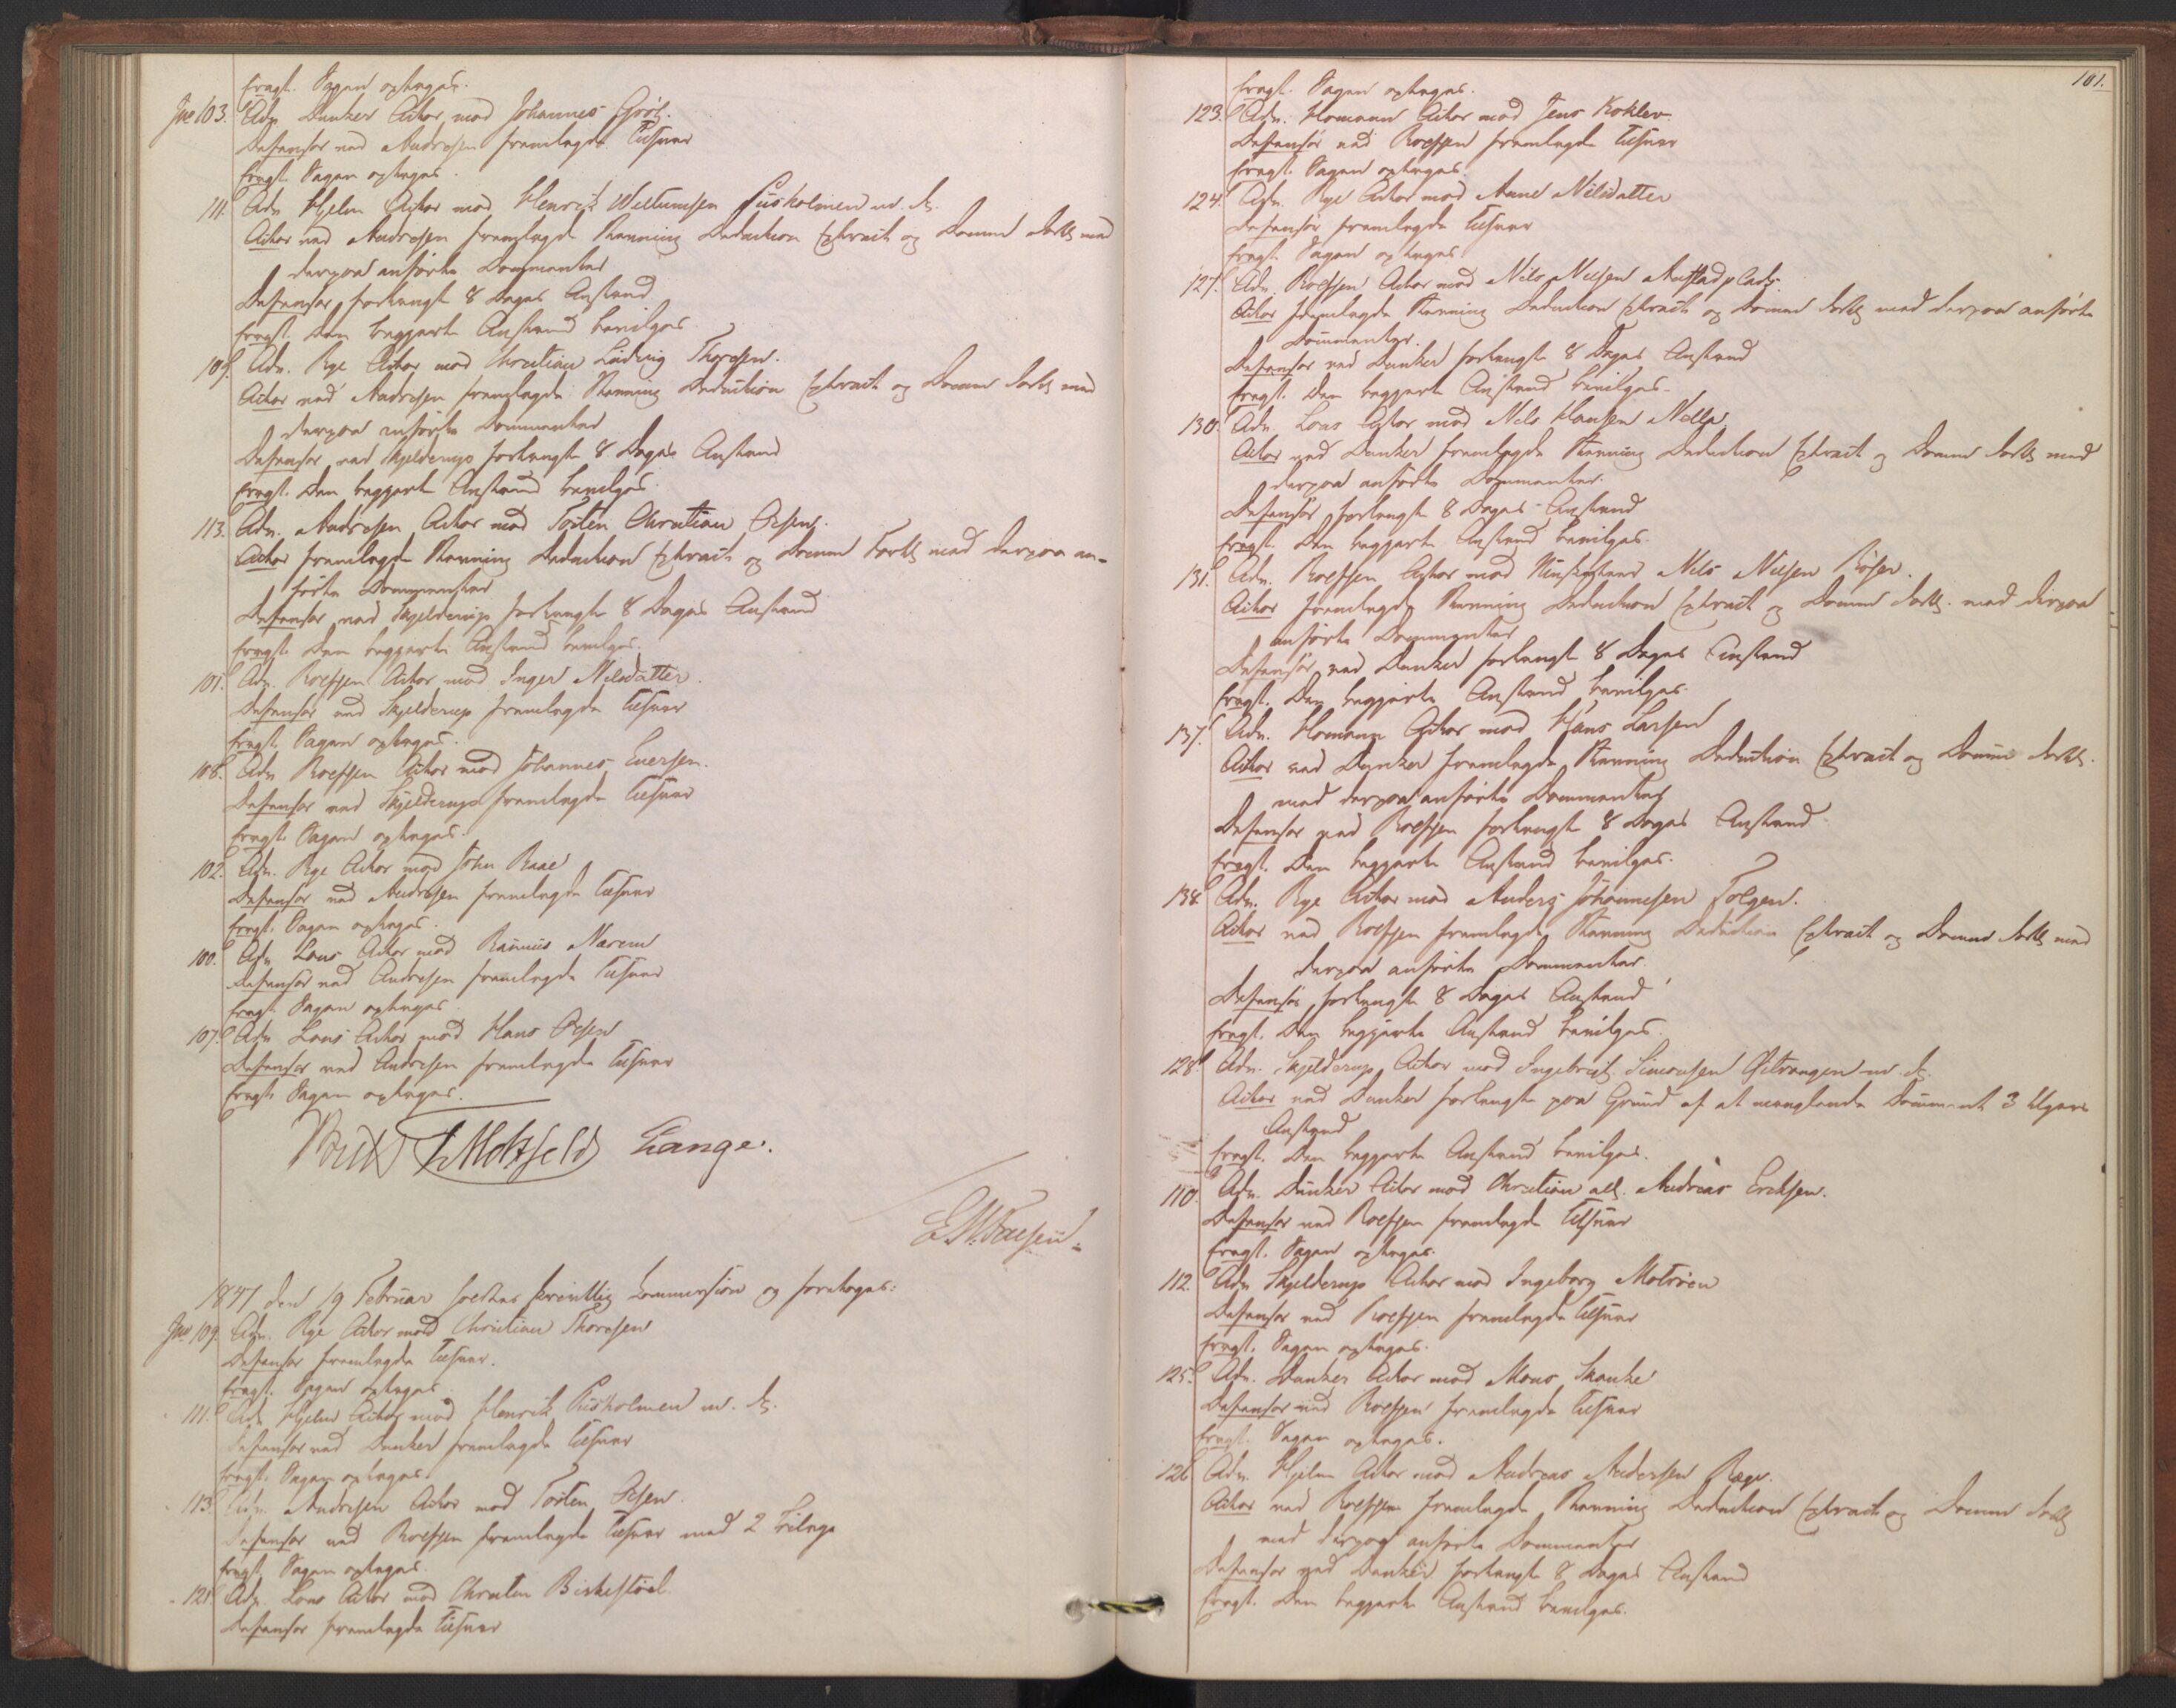 Eragt. Sagen optages.
Jno 103. Adv. Dunker Actor mod Johannes
Defensor ved Andresen fremlagde Tilsvar
Eragt. Sagen optages.
111. Adv. Hjelm Actor mod Henrik Willumsen Pusholmen m. fl.
Actor ved Andresen fremlagde Stævning Deduction Extract og Domme samt med
derpaa anførte Documenter
Defensor forlangte 8 Dages Anstand
Eragt. Den begjærte Anstand bevilges.
109. Adv. Rye Actor mod Christian Ludvig Thoresen.
Actor ved Andresen fremlagde Stævning Deduction Extract og Domme med
derpaa anførte Documenter
Defensor ved Skjelderup forlangte 8 Dages Anstand
Eragt. Den begjærte Anstand bevilges.
113. Adv. Andresen Actor mod Torsten Christian Olsen.
Actor fremlagde Stævning Deduction Extract og Domme med derpaa an-
førte Documenter
Defensor ved Skjelderup forlangte 8 Dages Anstand
Eragt. Den begjærte Anstand bevilges.
101. Adv. Rolfsen Actor mod Inger Nilsdatter.
Defensor ved Skjelderup fremlagde Tilsvar
Eragt. Sagen optages.
108. Adv. Rolfsen Actor mod Johannes Evensen.
Defensor ved Skjelderup fremlagde Tilsvar
Eragt. Sagen optages.
102. Adv. Rye Actor mod John Raae
Defensor ved Andresen fremlagde Tilsvar
Eragt. Sagen optages.
100. Adv. Lous Actor mod Rasmus Nærem
Defensor ved Andresen fremlagde Tilsvar
Eragt. Sagen optages
107. Adv. Lous Actor mod Hans Olsen
Defensor ved Andresen fremlagde Tilsvar
Eragt. Sagen optages.
Motzfeldt Lange.
1847 den 19 Februar holdtes skriftlig Commission og foretoges:
Jno 109. Adv. Rye Actor mod Christian Thoresen
Defensor fremlagde Tilsvar.
Eragt. Sagen optages.
111. Adv. Hjelm Actor mod Henrik Pusholmen m. fl.
Defensor ved Dunker fremlagde Tilsvar
Eragt. Sagen optages.
113. Adv. Andresen Actor mod Torsten Olsen.
Defensor ved Rolfsen fremlagde Tilsvar med 2 Bilage
Eragt. Sagen optages.
121. Adv. Lous Actor mod Christen Birkestøel.
Defensor fremlagde Tilsvar
101.
Eragt. Sagen optages.
123. Adv. Homann Actor mod Jens Koklev
Defensor ved Rolfsen fremlagde Tilsvar
Eragt. Sagen optages.
124. Adv. Rye Actor mod Anne Nilsdatter
Defensor fremlagde Tilsvar
Eragt. Sagen optages.
127. Adv. Rolfsen Actor mod Nils Nilsen
Actor fremlagde Stævning Deduction Extract og Domme med derpaa anførte
Documenter.
Defensor ved Dunker forlangte 8 Dages Anstand
Eragt. Den begjærte Anstand bevilges.
130. Adv. Lous Actor mod Nils Hansen
Actor ved Dunker fremlagde Stævning Deduction Extract og Domme med
derpaa anførte Documenter.
Defensor forlangte 8 Dages Anstand
Eragt. Den begjærte Anstand bevilges.
131. Adv. Rolfsen Actor mod Nils Nilsen
Actor fremlagde Stævning Deduction Extract og Domme med derpaa
anførte Documenter
Defensor ved Dunker forlangte 8 Dages Anstand
Eragt. Den begjærte Anstand bevilges.
137. Adv. Homann Actor mod Hans Larsen
Actor ved Dunker fremlagde Stævning Deduction Extract og Domme
med derpaa anførte Documenter
Defensor ved Rolfsen forlangte 8 Dages Anstand.
Eragt. Den begjærte Anstand bevilges.
138. Adv. Rye Actor mod Anders Johannesen Tolgen.
Actor ved Rolfsen fremlagde Stævning Deduction Extract og Domme med
derpaa anførte Documenter.
Defensor forlangte 8 Dages Anstand
Eragt. Den begjærte Anstand bevilges.
128. Adv. Skjelderup Actor mod Ingebrigt Simonsen m. fl.
Actor ved Dunker forlangte paa Grund af et manglende Document 3 Ugers
Anstand
Eragt. Den begjærte Anstand bevilges.
110. Adv. Dunker Actor mod Christian all. Andreas Ericksen.
Defensor ved Rolfsen fremlagde Tilsvar
Eragt. Sagen optages.
112. Adv. Skjelderup Actor mod Ingeborg Motröen
Defensor ved Rolfsen fremlagde Tilsvar
Eragt. Sagen optages.
125. Adv. Dunker Actor mod Mons Skanke
Defensor ved Rolfsen fremlagde Tilsvar
Eragt. Sagen optages.
126. Adv. Hjelm Actor mod Andreas Andersen
Actor ved Rolfsen fremlagde Stævning Deduction Extract og Domme
med derpaa anførte Documenter
Defensor ved Dunker forlangte 8 Dages Anstand
Eragt. Den begjærte Anstand bevilges.